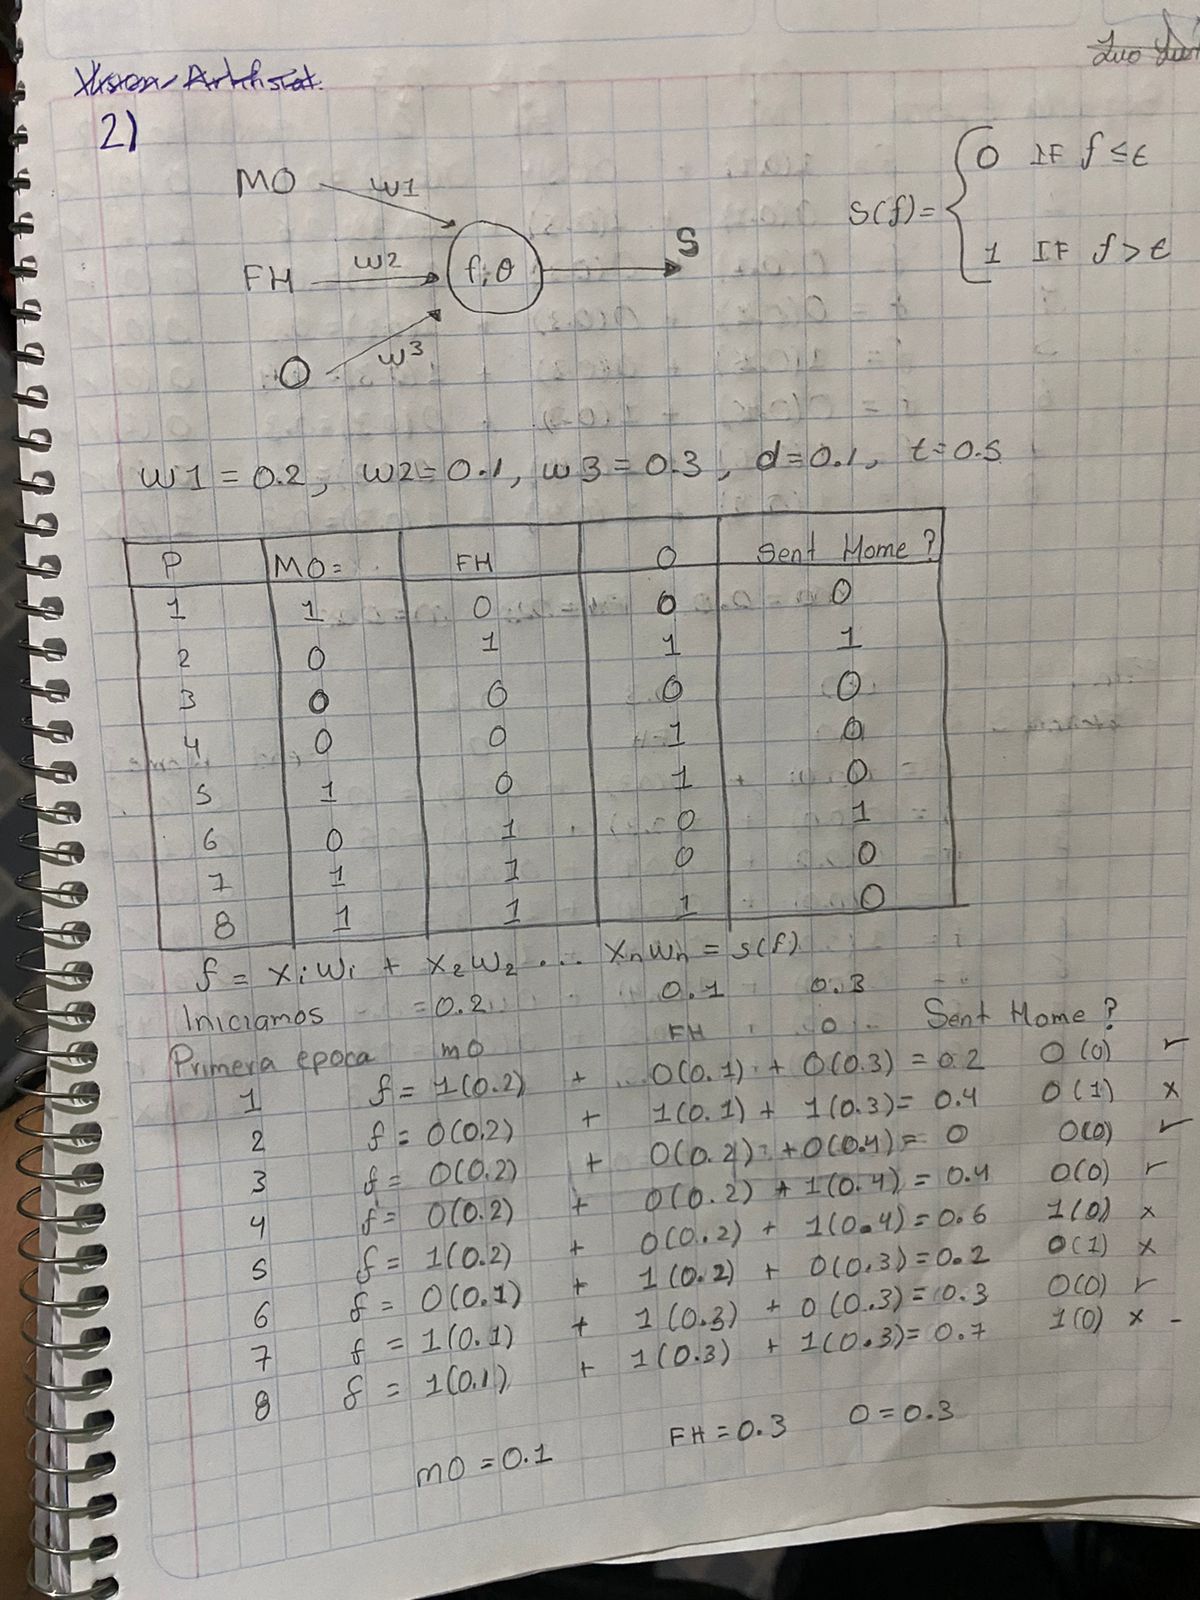 2)
MO w1
FH w2 f, θ S
O w3
S(f)= { 0 IF f ≤ t
1 IF f > t
w1 = 0.2, w2 = 0.1, w3 = 0.3, d = 0.1, t = 0.5
P MO= FH O Sent Home?
1 1 0 0 0
2 0 1 1 1
3 0 0 0 0
4 0 0 1 0
5 1 0 1 0
6 0 1 0 1
7 1 1 0 0
8 1 1 1 0
f = xiwi + x2w2 ... xnwn = s(f)
Iniciamos = 0.2 0.1 0.3
Primera epoca mO FH O Sent Home?
1 f = 1(0.2) + 0(0.1) + 0(0.3) = 0.2 0(0) ✓
2 f = 0(0.2) + 1(0.1) + 1(0.3) = 0.4 0(1) x
3 f = 0(0.2) + 0(0.2) + 0(0.4) = 0 0(0) ✓
4 f = 0(0.2) + 0(0.2) + 1(0.4) = 0.4 0(0) ✓
5 f = 1(0.2) + 0(0.2) + 1(0.4) = 0.6 1(0) x
6 f = 0(0.1) + 1(0.2) + 0(0.3) = 0.2 0(1) x
7 f = 1(0.1) + 1(0.3) + 0(0.3) = 0.3 0(0) ✓
8 f = 1(0.1) + 1(0.3) + 1(0.3) = 0.7 1(0) x -
mO = 0.1 FH = 0.3 O = 0.3